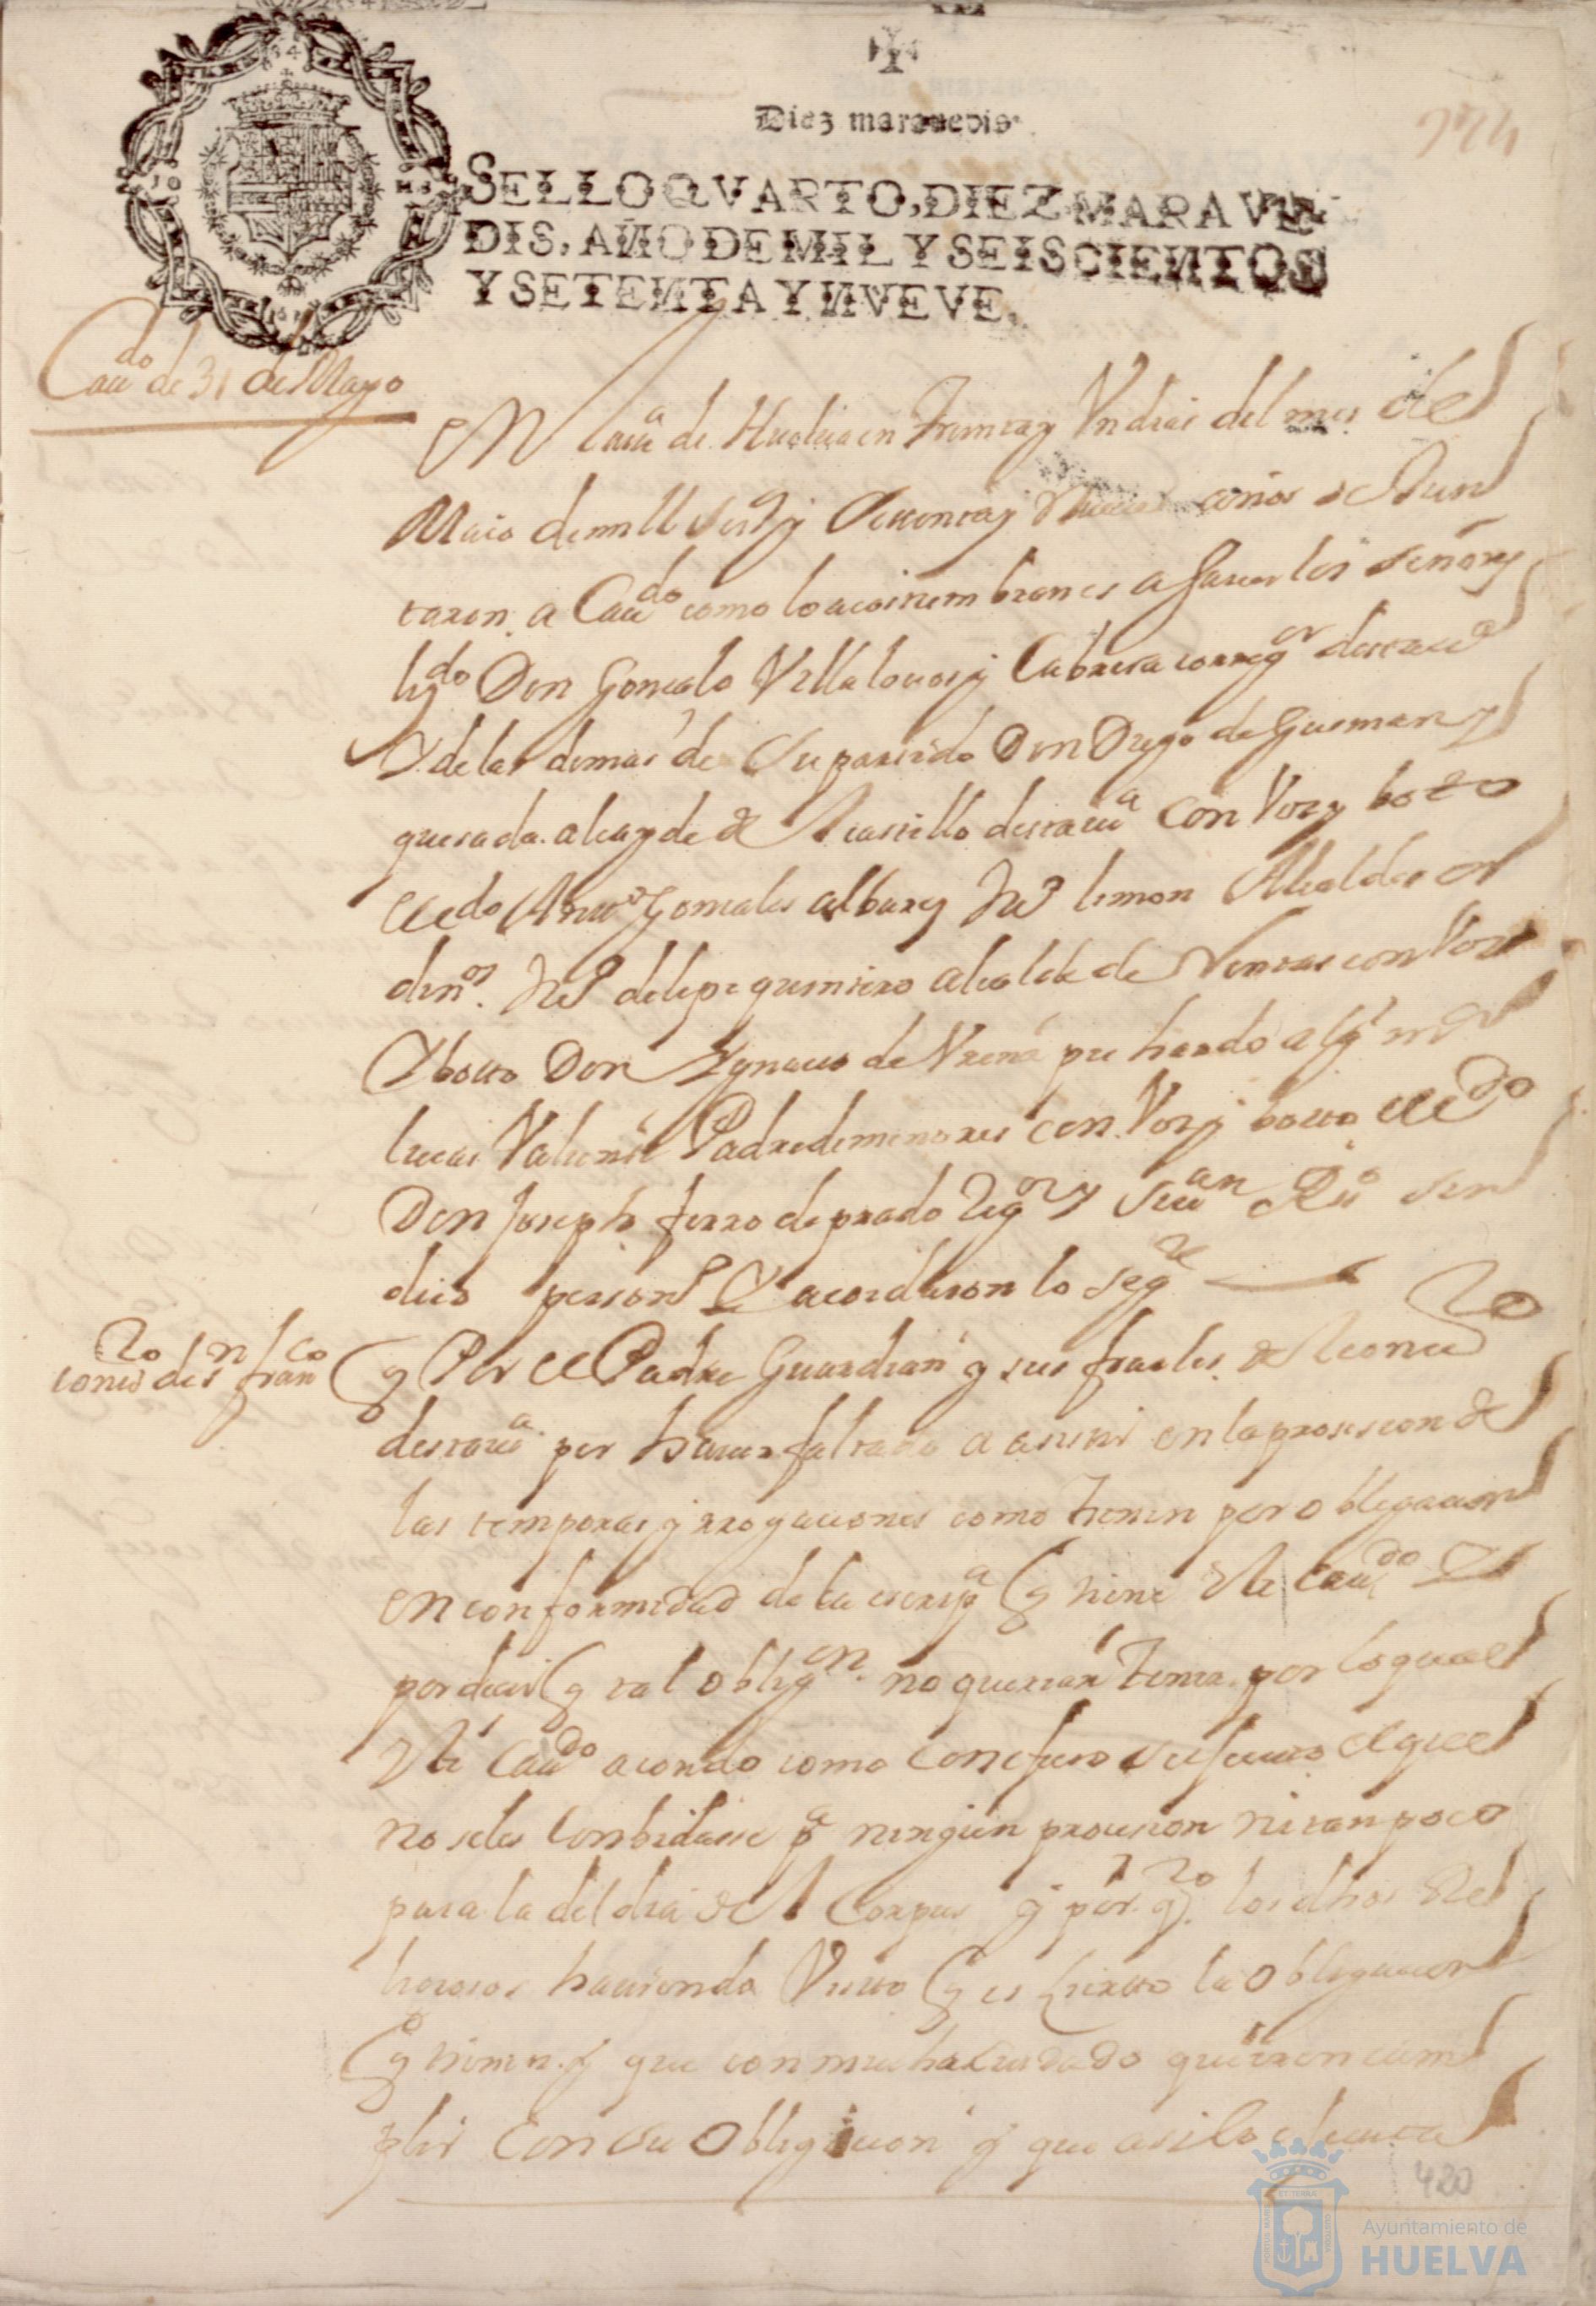 Diez maravedis.
224
SELLO QVARTO, DIEZ MARAVE
DIS, AÑO DE MIL Y SEISCIENTOS
Y SETENTA Y NVEVE.
Cauᵈᵒ de 31 de Mayo
En la uiᵃ de Huelua en treinta y Vn dias del mes de
Maio de mill seisᵒˢ y settenta y nueue años se Jun
taron a Cauᵈᵒ como lo acostumbran es a sauer los señores
lizᵈᵒ Don Gonzalo Villalouos y Cabrera corregᵒʳ desta uiᵃ
Y de las demas de su partido Don Diego de Gusman y
quesada alcayde del castillo desta uiᵃ con Voz y boto
el lizᵈᵒ gonzales albarez Juᵒ limon Alcaldes or
dinᵒˢ Juᵒ de lepe quintero alcalde de Ventas con Voz
Y botto Don Ygnacio de
lucas Padre de menores con Voz y botto el lizᵈᵒ
Don Joseph fierro de prado Regᵒʳ y
dico personᵒ Y acordaron lo sigᵗᵉ
conuᵗᵒ de sⁿ franᶜᵒ
q Por el Padre Guardian y sus frailes del conuᵗᵒ
desta uiᵃ por hauer faltado a asistir en la prosesion de
las temporas y rrogaciones como tienen por obligacion
en conformidad de la escripᵃ q tiene este cauᵈᵒ Y
por decir q tal obligᵒⁿ no querian tener por lo qual
este Cauᵈᵒ acordo como con efecto se efectuo el que
no se les conbidasse pᵃ ningun procesion ni tanpoco
para la del dia del Corpus y por qᵗᵒ los dhos Reli
hiosos hauiendo Visto q es cierto la obligacion
q tienen y que con mucho cuidado quieren cum
plir con su obligacion y que asi lo
420
Ayuntamiento de
HUELVA